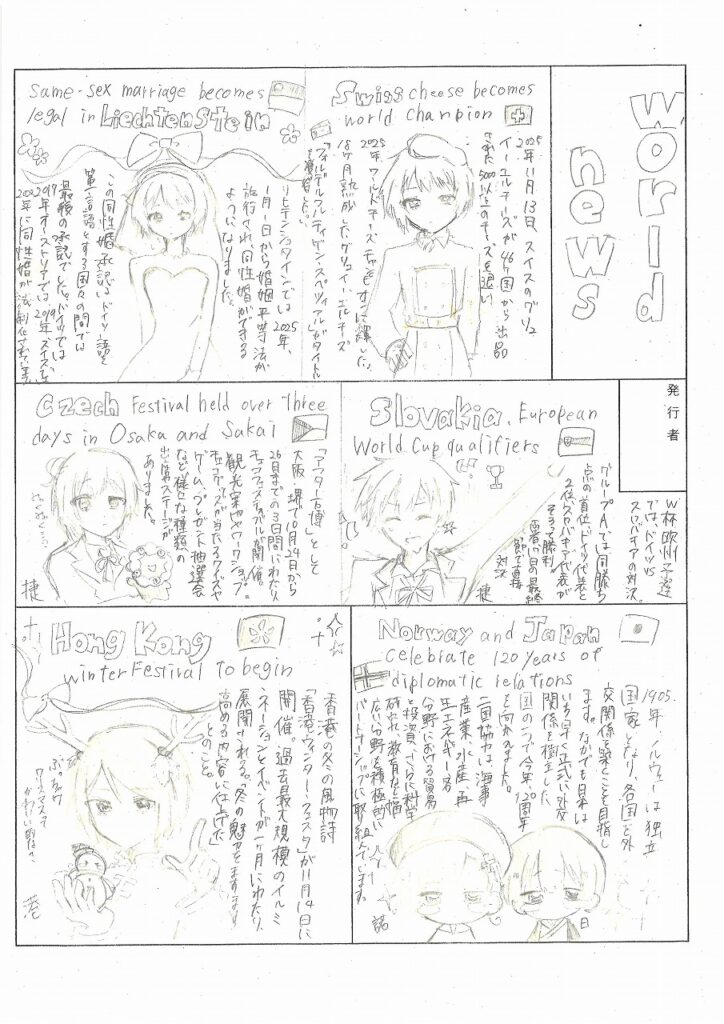 World
news
発行者
Swiss cheese becomes
world champion
2025年11月13日、スイスのグリュ
イエールチーズが46ヶ国から出品
された5000以上のチーズを
2025年ワールドチーズ
18ヶ月熟成したグリュイエールチーズ
Same-sex marriage becomes
legal in Liechtenstein
リヒテンシュタインでは2025年、
1月1日から婚姻平等法が
施行され、同性婚ができる
ようになりました。
この同性婚承認はドイツ語を
第一言語とする国々の間では
最後の承認でした。ドイツでは
2017年オーストリアでは2019年スイスで
2022年に同性婚が法制化
Slovakia, European
World Cup qualifiers
W杯欧州予選
では、ドイツVS
スロバキアの対決。
グループAでは同勝ち
点の首位、ドイツ代表と
2位、スロバキア代表が
そろって勝利。
両者17日の最終
節で直接
対決
捷
Czech Festival held over Three
days in Osaka and Sakai
「アフター万博」として
大阪、堺で10月24日から
26日までの3日間にわたり
チェコフェスティバルが開催。
観光案内やワークショップ、
チェコグッズが当たるクイズや
ゲーム、プレゼント抽選会
など様々な種類の
出店、ステージが
ありました。
捷
Norway and Japan
celebrate 120 years of
diplomatic relations
1905年、ノルウェーは独立
国家となり、各国と外
交関係を築くことを目指し
ます。なかでも日本は
いち早く正式に外交
関係を樹立した
国の一つで今年、120周年
を向かえました。
二国協力は、海事
産業、水産、再
生エネルギー各
分野における貿易
と投資、さらに科学
研究、教育など幅
広い分野を積極的に
パートナーシップに取組んでいます。
諾
日
Hong Kong
winter Festival to begin
香港の冬の風物詩
「香港ウィンター・フェスタ」が11月14日に
開催。過去最大規模のイルミ
ネーションとイベントが一ヶ月にわたり、
展開される。「冬の魅力をますます
高める内容に仕上げた」
とのこと。
港